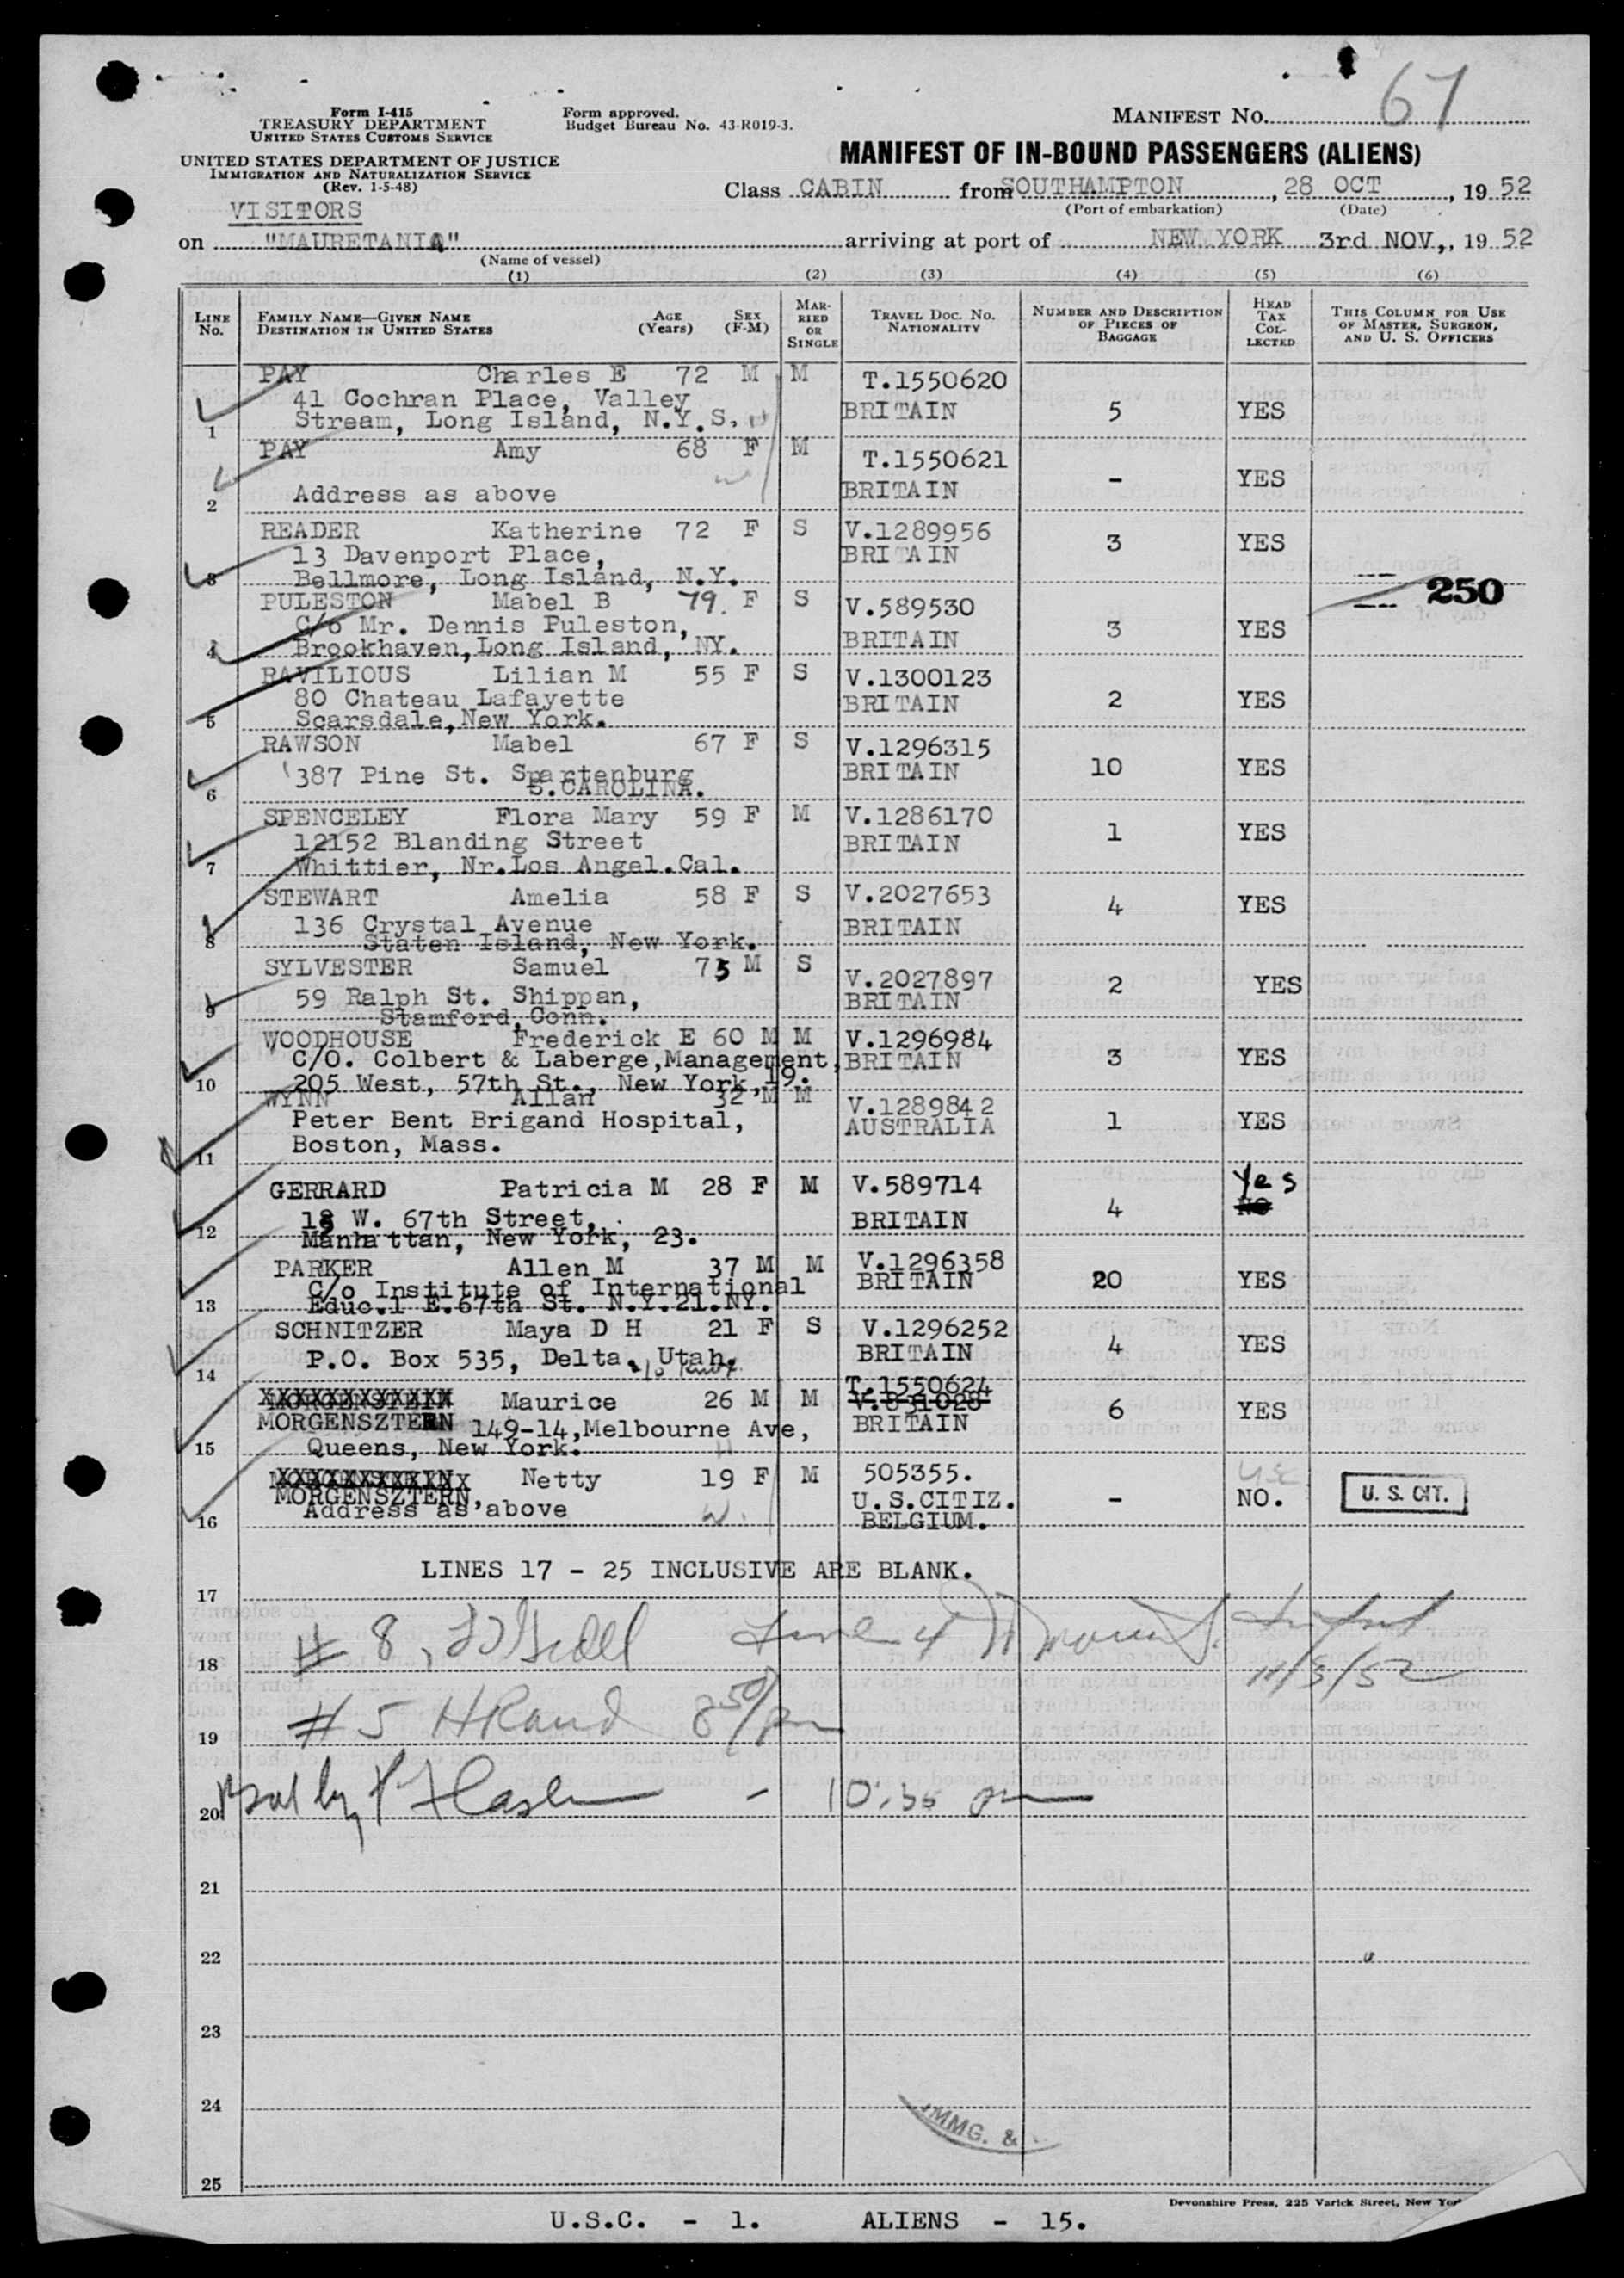 67
Form I-415
TREASURY DEPARTMENT
UNITED STATES CUSTOMS SERVICE
Form approved.
Budget Bureau No. 43-R019-3.
MANIFEST NO.
UNITED STATES DEPARTMENT OF JUSTICE
IMMIGRATION AND NATURALIZATION SERVICE
(Rev. 1-5-48)
MANIFEST OF IN-BOUND PASSENGERS (ALIENS)
Class CABIN from SOUTHAMPTON, 28 OCT, 19 52
(Port of embarkation) (Date)
VISITORS
on "MAURETANIA" arriving at port of NEW YORK 3rd NOV., 19 52
(Name of vessel)
(1) (2) (3) (4) (5) (6)
LINE No. FAMILY NAME—GIVEN NAME DESTINATION IN UNITED STATES AGE (Years) SEX (F-M) MARRIED OR SINGLE TRAVEL DOC. NO. NATIONALITY NUMBER AND DESCRIPTION OF PIECES OF BAGGAGE HEAD TAX COLLECTED THIS COLUMN FOR USE OF MASTER, SURGEON, AND U. S. OFFICERS
PAY Charles E 72 M M T.1550620
41 Cochran Place, Valley BRITAIN 5 YES
1 Stream, Long Island, N.Y.S.
PAY Amy 68 F M T.1550621
2 Address as above BRITAIN - YES
READER Katherine 72 F S V.1289956
13 Davenport Place, BRITAIN 3 YES
3 Bellmore, Long Island, N.Y.
PULESTON Mabel B 79. F S V.589530 250
C/o Mr. Dennis Puleston, BRITAIN 3 YES
4 Brookhaven, Long Island, NY.
RAVILIOUS Lilian M 55 F S V.1300123
80 Chateau Lafayette BRITAIN 2 YES
5 Scarsdale, New York.
RAWSON Mabel 67 F S V.1296315
387 Pine St. Spartenburg BRITAIN 10 YES
6 S.CAROLINA.
SPENCELEY Flora Mary 59 F M V.1286170
12152 Blanding Street BRITAIN 1 YES
7 Whittier, Nr.Los Angel.Cal.
STEWART Amelia 58 F S V.2027653 4 YES
136 Crystal Avenue BRITAIN
8 Staten Island, New York.
SYLVESTER Samuel 75 M S V.2027897 2 YES
9 59 Ralph St. Shippan, BRITAIN
Stamford, Conn.
WOODHOUSE Frederick E 60 M M V.1296984
C/O. Colbert & Laberge,Management, BRITAIN 3 YES
10 205 West, 57th St., New York,19.
WYNN Allan 32 M M V.1289842
Peter Bent Brigand Hospital, AUSTRALIA 1 YES
11 Boston, Mass.
GERRARD Patricia M 28 F M V.589714 Yes
W. 67th Street, BRITAIN 4 NO
12 Manhattan, New York, 23.
PARKER Allen M 37 M M V.1296358
C/o Institute of International BRITAIN 20 YES
13 Educ.1 E.67th St. N.Y.21.NY.
SCHNITZER Maya D H 21 F S V.1296252
14 P.O. Box 535, Delta, Utah. BRITAIN 4 YES
Maurice 26 M M T.1550624
V.831028
MORGENSZTERN 149-14,Melbourne Ave, BRITAIN 6 YES
15 Queens, New York.
Netty 19 F M 505355.
MORGENSZTERN, U.S.CITIZ. - NO. U. S. CIT.
16 Address as above BELGIUM.
LINES 17 - 25 INCLUSIVE ARE BLANK.
17
18 # 8,
11/3/52
19 # 5 HRand 8 50/pm
20 - 10:35 pm
21
22
23
24
IMMG. &
25
Devonshire Press, 225 Varick Street, New York
U.S.C. - 1. ALIENS - 15.